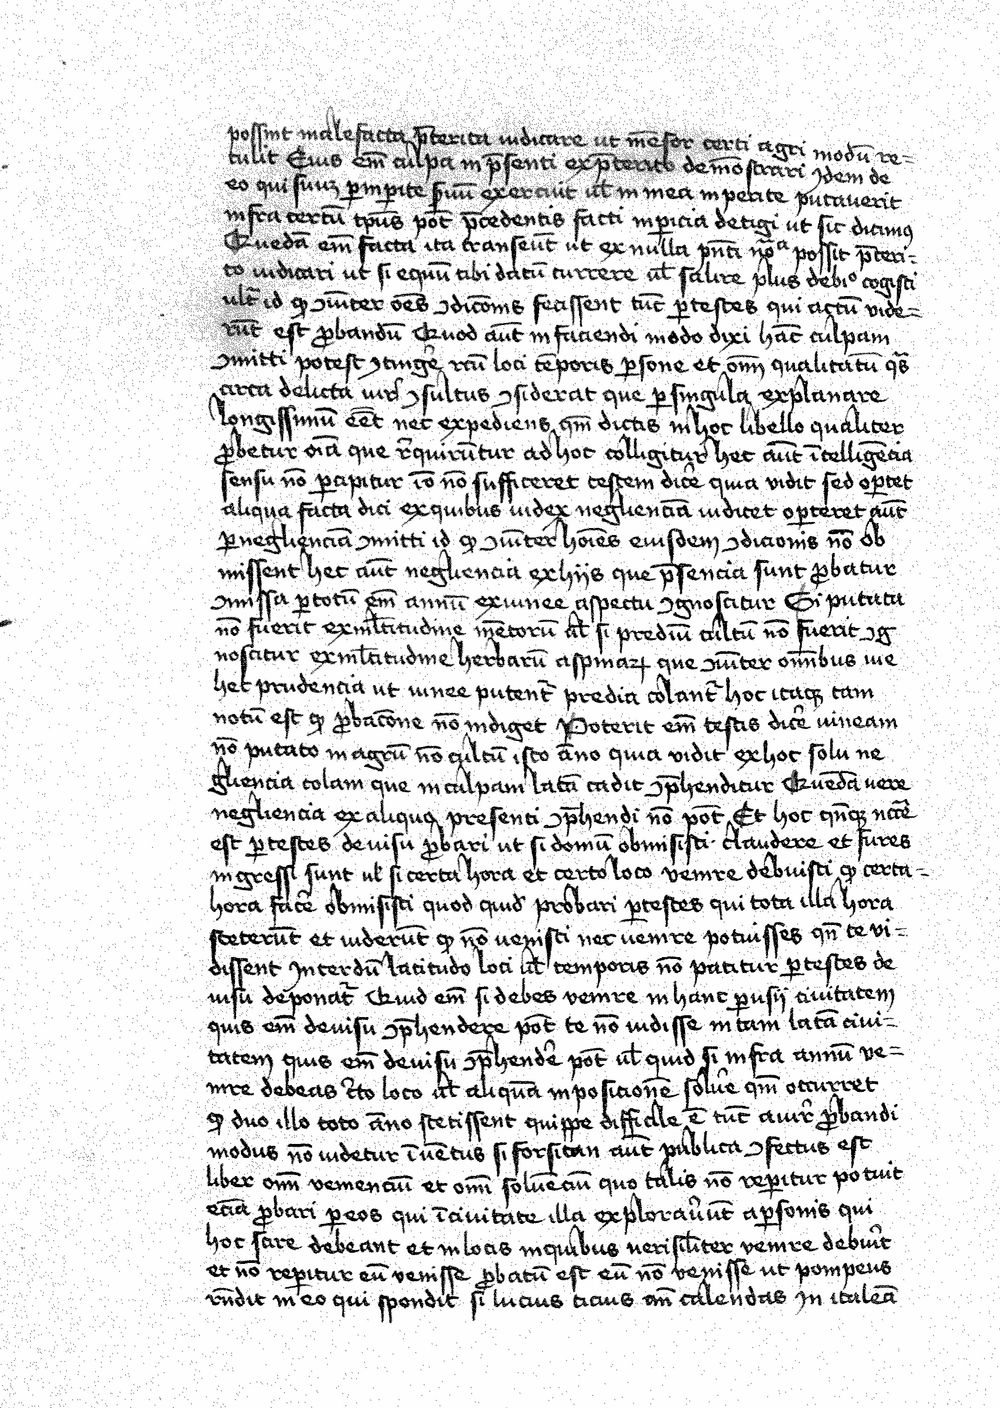 possint malefacta p̄terita iudicare ut mēsor certi agri modū re=
tulit Eius em̄ culpa in p̄senti ex p̄terito demōstrari ꝯdem de
eo qui suuꝫ ꝑinpite suū exercuit ul̄ in mea inperite putaverit
infra certū tp̄us pōt p̄cedentis facti inpicia detigi ut sic dicimꝰ
Quedā em̄ facta ita transeūt ut ex nulla pn̄ti nōa possit p̄teri=
to iudicari ut si equū tibi datū currere ul̄ salire plus debito cogisti
ult̄ id ꝙ ꝯiūiter oēs ꝯdicōnis fecissent tūc ꝑ testes qui actū vide=
rūt est ꝓbandū Quod aūt in faciendi modo dixi hāc culpam
ꝯmitti potest ꝯtinge᷑ rcū loci tēporis ꝑsone et om̄ qualitatū qᷓs
circa delicta iur᷑ ꝯsultus ꝯsiderat que ꝑ singula explanare
longissimū eēt nec expediens qm̄ dictis in hoc libello qualiter
ꝓbetur oīa que r̄quirūtur ad hoc colligitur hec aūt ītelligēcia
sensu nō ꝑcipitur iō nō sufficeret testem dice᷑ quia vidit sed oꝑtet
aliqua facta dici ex quibus iudex negliēciā iudicet oꝑteret aūt
ꝑ negliēciā ꝯmitti id ꝙ ꝯiūiter hoīes eiusdem ꝯdicionis nō ob
missent hec aūt negliencia ex hijs que p̄sencia sunt ꝓbatur
ꝯmissa ꝑ totū em̄ annū ex uinee aspectu ꝯgnoscitur Si putata
nō fuerit ex ml̄titudine mētorū ul̄ si prediū cultū nō fuerit ꝯg
noscitur ex ml̄titudine herbarū a spinaꝝ que ꝯiūiter om̄ibus uie
hec prudencia ut uinee putent᷑ predia colant᷑ hoc itaqꝫ tam
notū est ꝙ ꝓbacōne nō indiget Poterit em̄ testis dice᷑ uineam
nō putato in agrū nō cultū isto āno quia vidit ex hoc solu ne
gliencia colam que in culpam latā cadit ꝯp̄henditur Quedā vere
negliencia ex aliquo presenti ꝯp̄hendi nō pōt Et hoc qn̄qꝫ ncc̄e
est ꝑ testes de uisu ꝓbari ut si domū obmisisti claudere et fures
ingressi sunt ul̄ si certa hora et certo loco venire debuisti ꝙ certa=
hora face᷑ obmisisti quod quid᷑ probari ꝑ testes qui tota illa hora
steterūt et uiderūt ꝙ nō uenisti nec uenire potuisses qn̄ te vi=
dissent Interdū latitudo loci ul̄ temporis nō patitur ꝑ testes de
uisu deponat᷑ Quid em̄ si debes venire in hanc ꝑusij ciuitatem
quis em̄ de uisu ꝯp̄hendere pōt te nō uidisse in tam latā ciui=
tatem quis em̄ de uisu ꝯp̄hende᷑ pōt ul̄ quid si infra annū ve=
nire debeas c᷑to loco ul̄ aliquā inposicionē solue᷑ qm̄ occurret
ꝙ duo illo toto āno stetissent quippe difficile ē tūc a iur᷑ ꝓbandi
modus nō uidetur īuētus si forsitan aūt publica ꝯfectus est
liber om̄ veniēciū et om̄ soluēciū quo talis nō reꝑitur potuit
eciā ꝓbari ꝑ eos qui ī ciuitate illa explorau᷑ūt a ꝑsonis qui
hoc scire debeant et in locis in quibus uerisil̄iter venire debuit᷑
et nō reꝑitur eū venisse ꝓbatū est eū nō venisse ut pompeus
rn̄dit in eo qui spondit si lucius ticius an̄ calendas in italeā